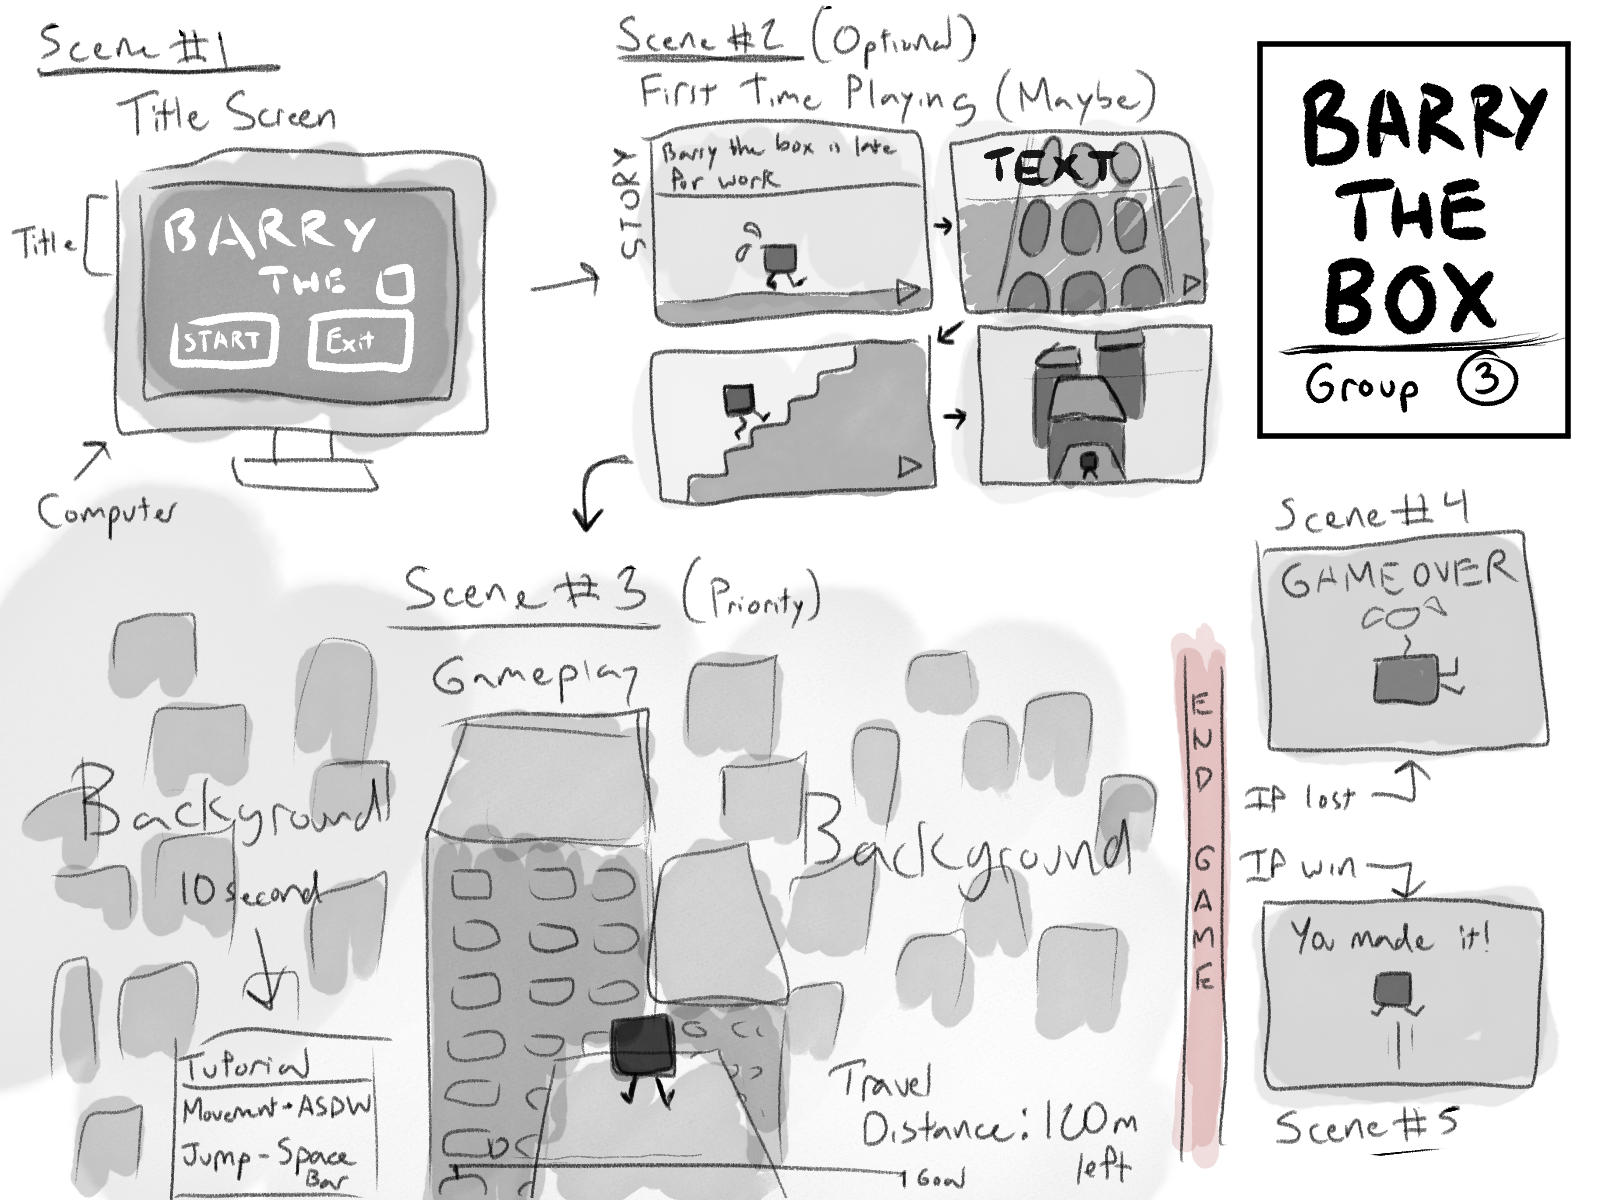 Scene #1
Title Screen
Title
BARRY
THE
START
Exit
Computer
Scene #2 (Optional)
First Time Playing (Maybe)
STORY
Barry the box is late
for work
TEXT
BARRY
THE
BOX
Group 3
Scene #3 (Priority)
Gameplay
Background
10 second
Tutorial
Movement - ASDW
Jump - Space
Bar
Background
Travel
Distance: 120m
left
1 Goal
END GAME
Scene #4
GAME OVER
IF lost
IF win
You made it!
Scene #5